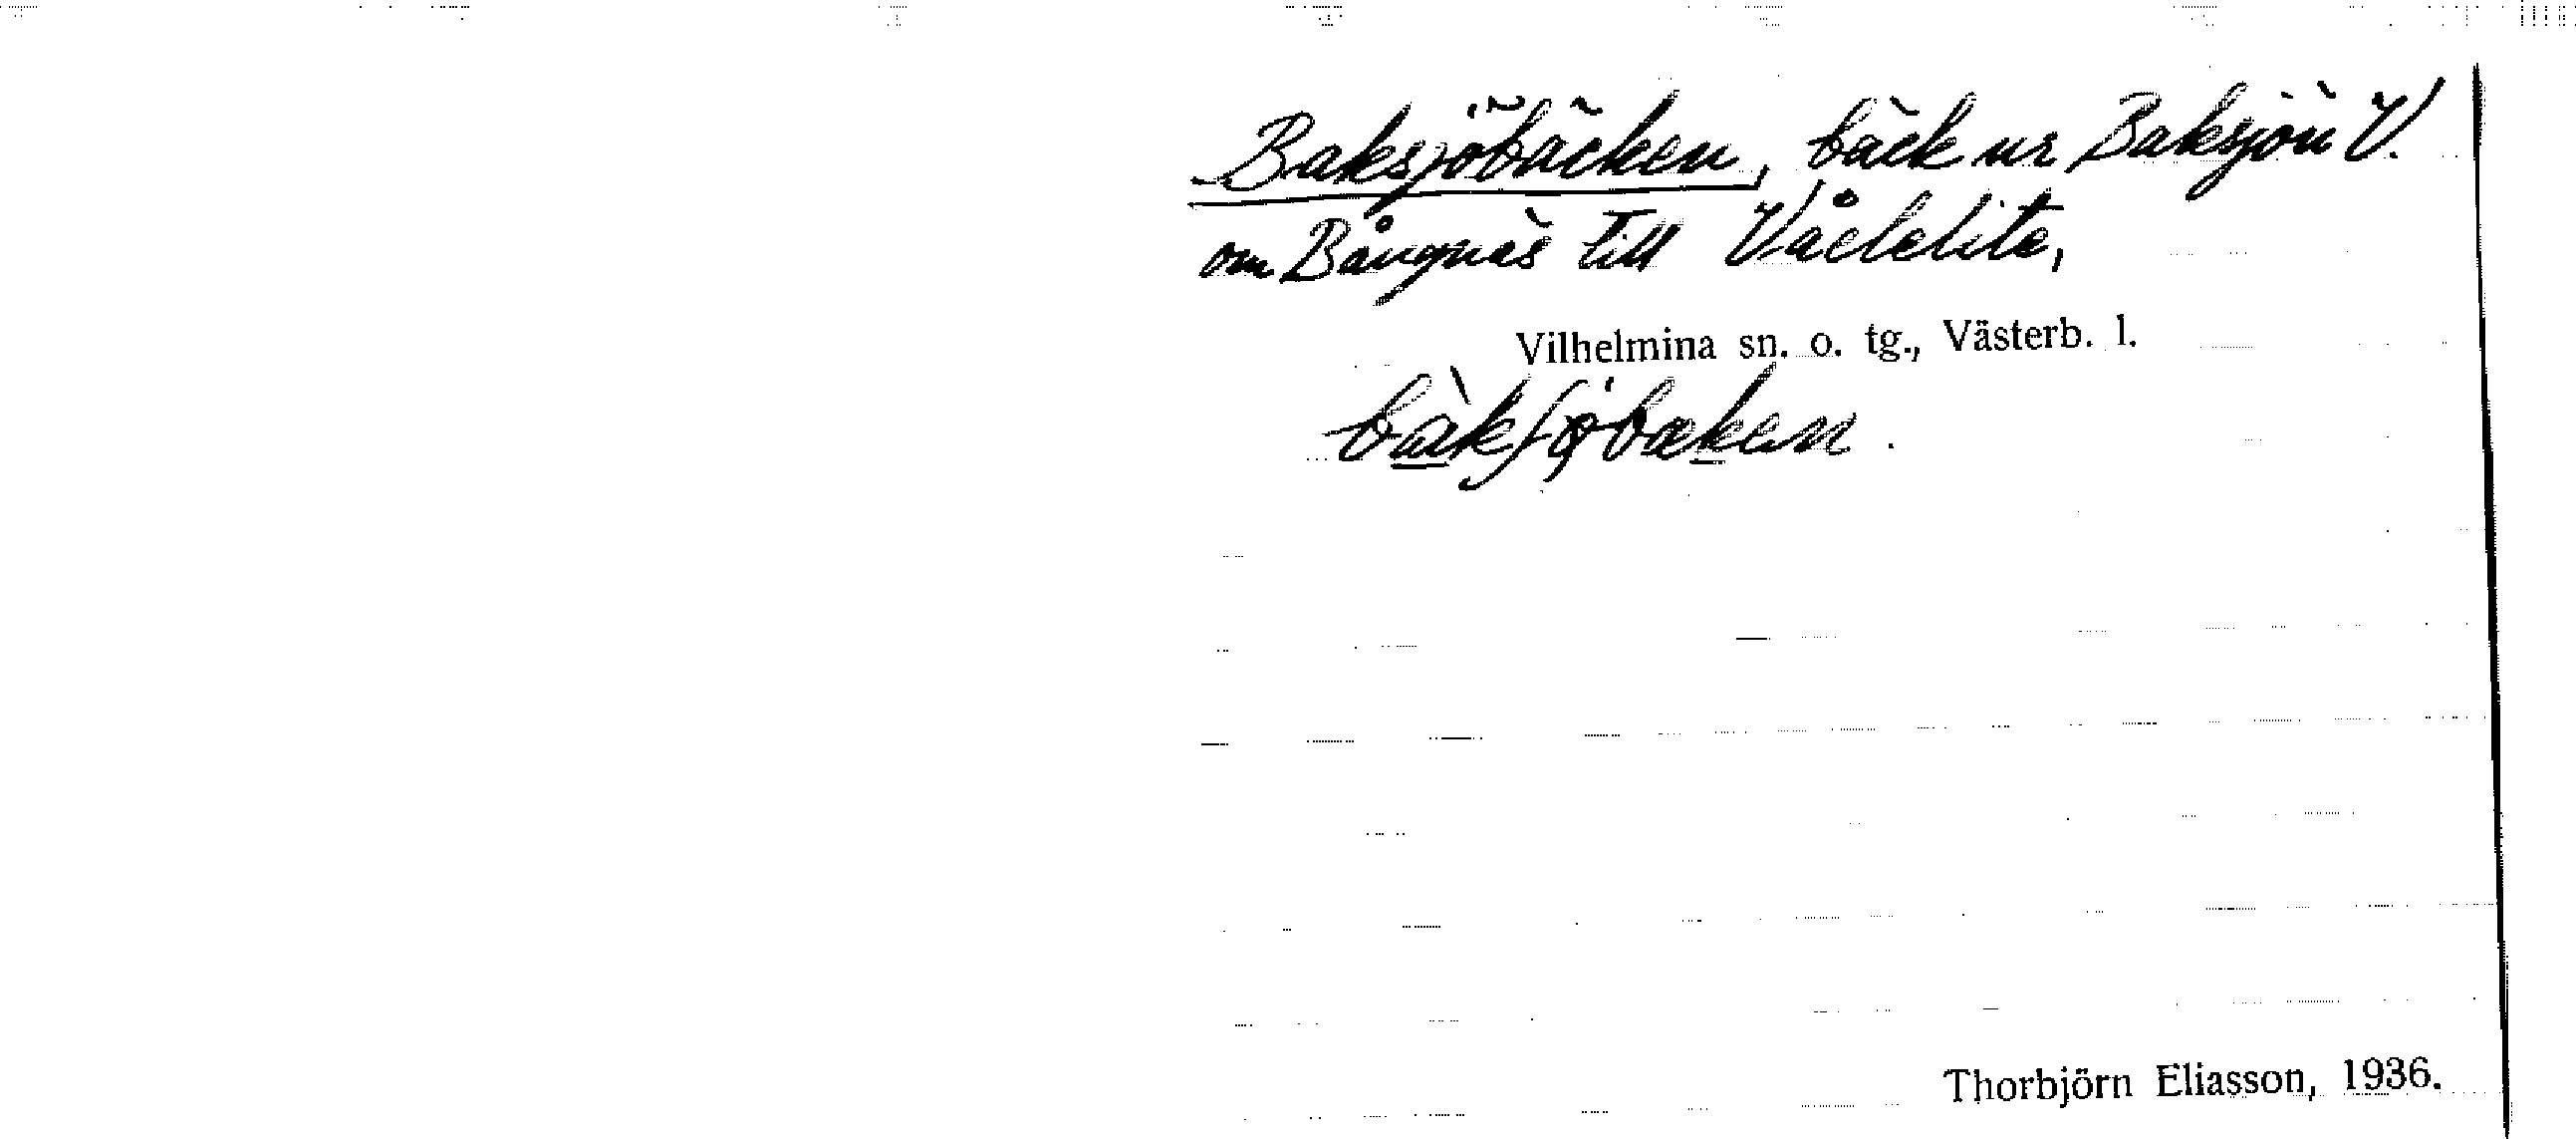 Baksjöbäcken, bäck ur Baksjön V.
om Bångnäs till
Vilhelmina sn. o. tg., Västerb. l.
Thorbjörn Eliasson, 1936.